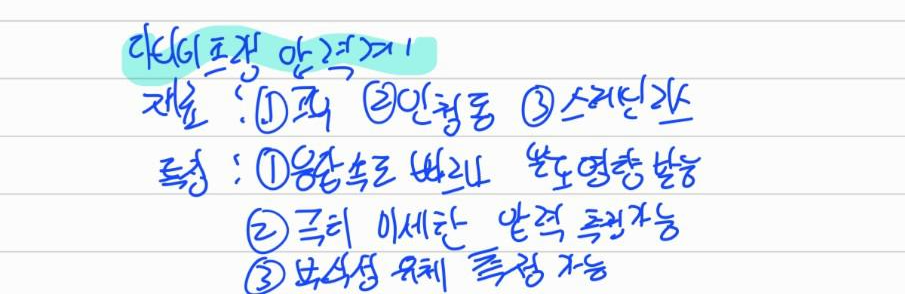 다이어프램 압력계
재료 : ① 고무 ② 인청동 ③ 스테인리스
특징 : ① 응답속도 빠르나 온도영향 받음
② 극히 미세한 압력 측정가능
③ 부식성 유체 측정 가능